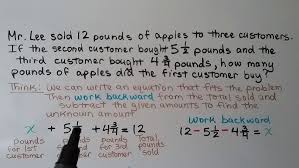 Mr. Lee sold 12 pounds of apples to three customers.
If the second customer bought 5 1/2 pounds and the
third customer bought 4 3/4 pounds, how many
pounds of apples did the first customer buy?
Think: We can write an equation that fits the problem.
Then work backward from the total sold and
subtract the given amounts to find the
unknown amount.
x + 5 + 4 3/4 = 12
pounds for 1st customer pounds for pounds for 3rd customer Total pounds sold
Work backward
12 - 5 1/2 - 4 3/4 = x